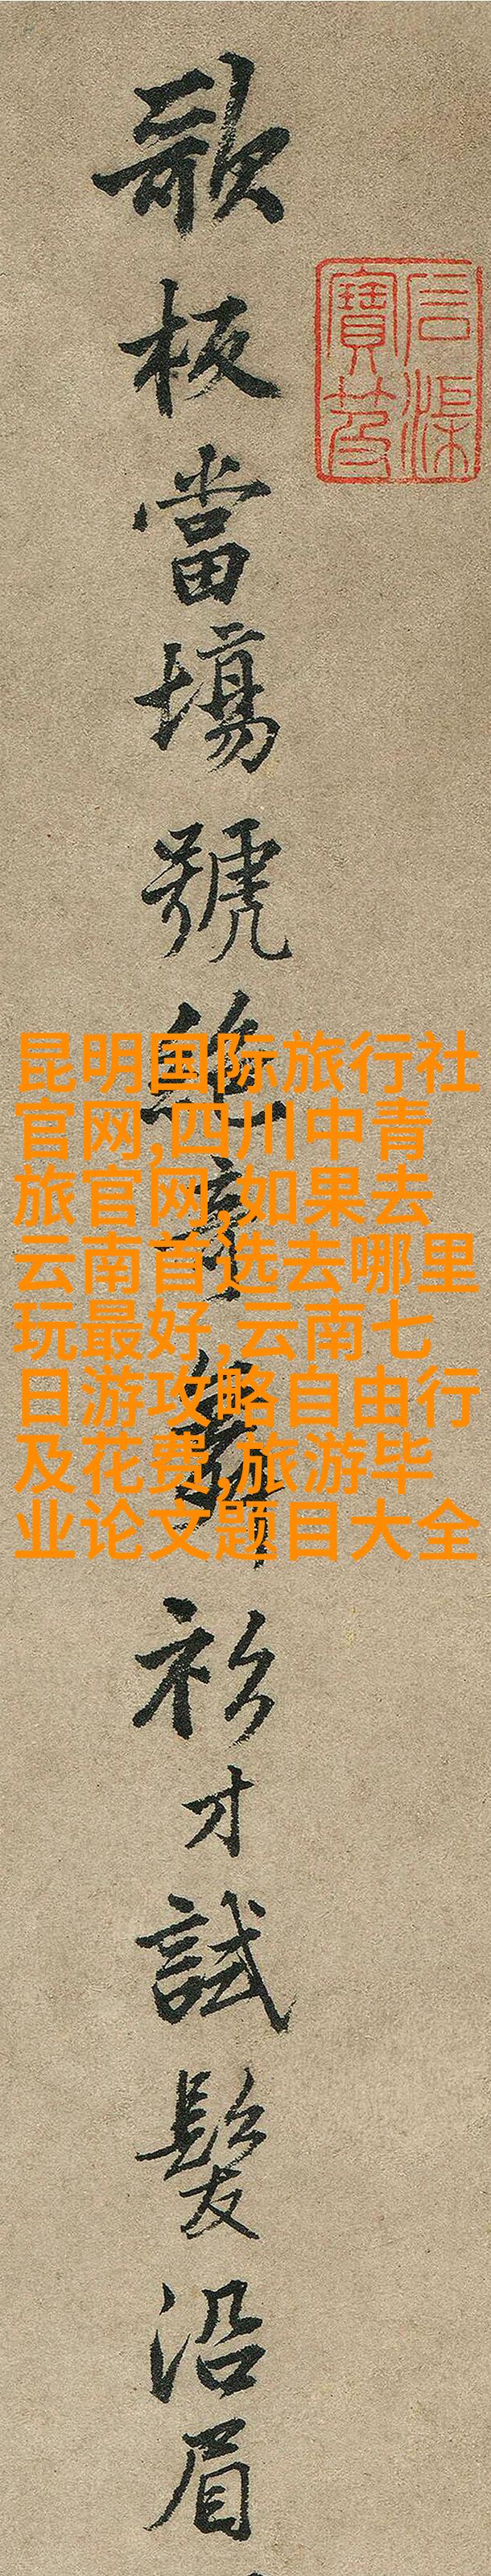 歌板當場號絶奇舞衫才試髮沿眉
石渠寶笈
昆明国际旅行社
官网,四川中青
旅官网,如果去
云南首选去哪里
玩最好,云南七
日游攻略自由行
及花费,旅游毕
业论文题目大全